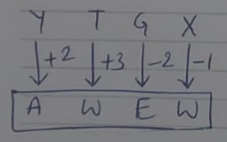 Y T G X
+2 +3 -2 -1
A W E W